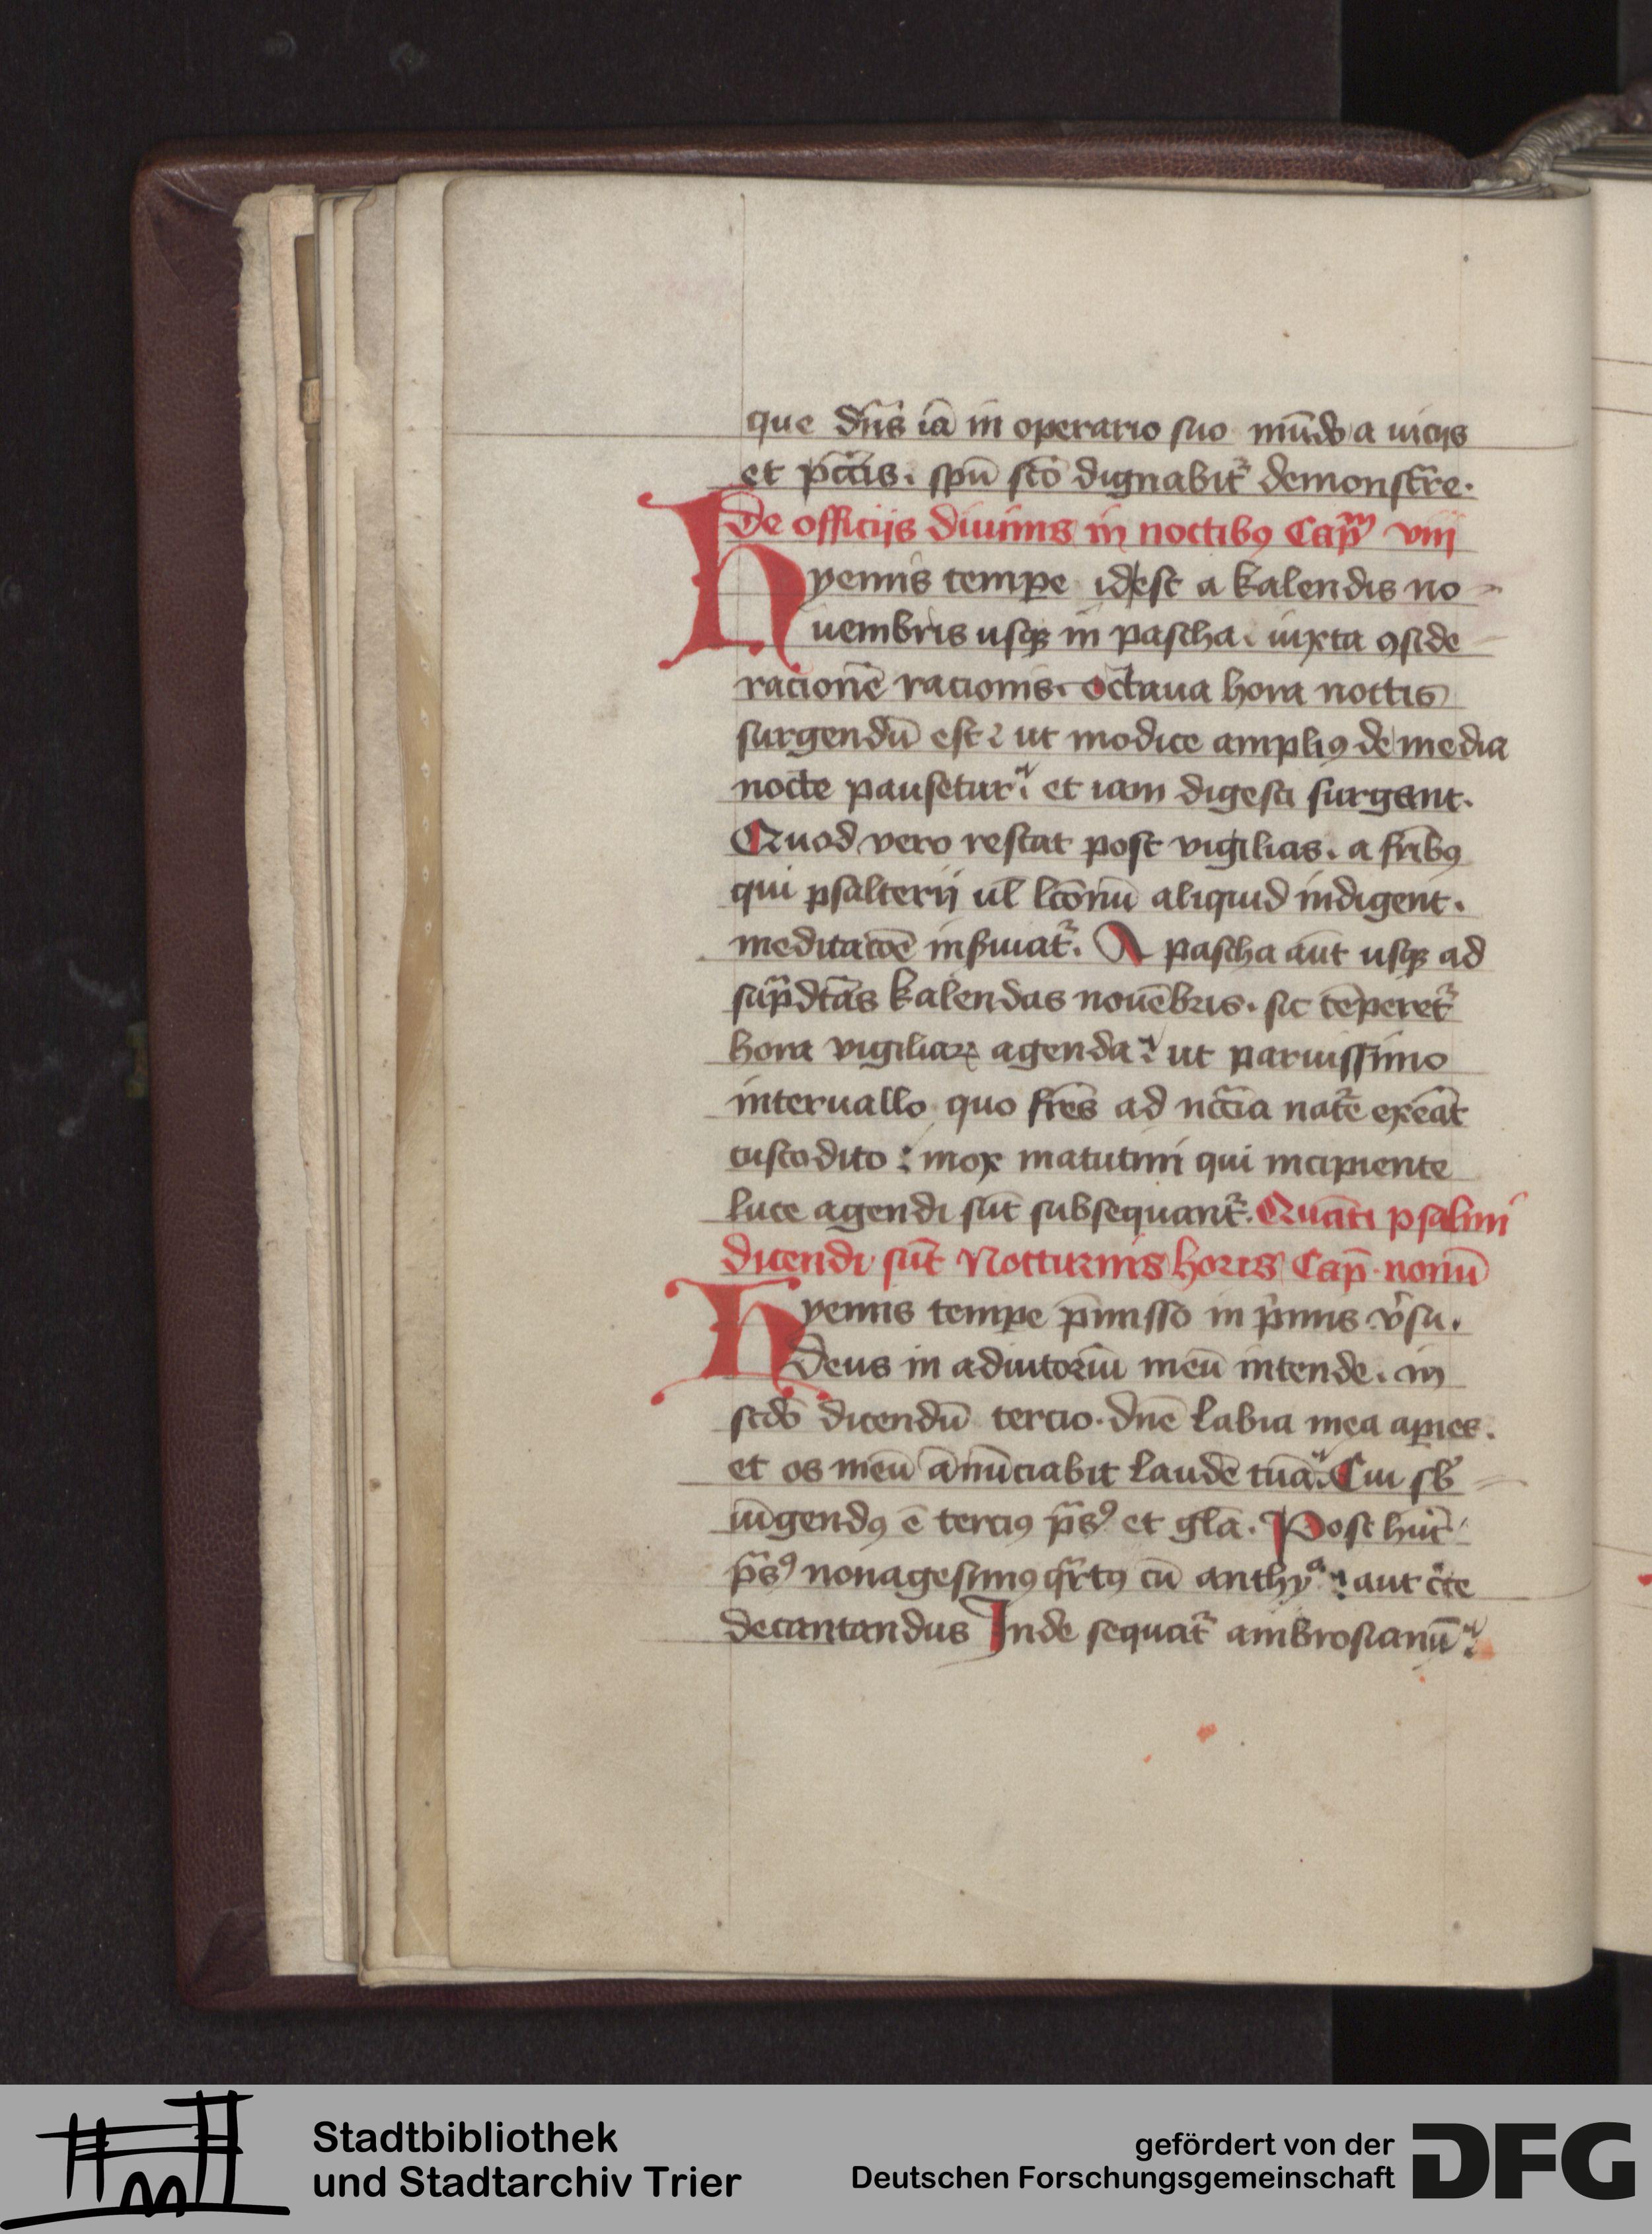 que dn̄s iā in operario suo mūdo a uicijs
et pc̄cis. spū scō dignabit᷑ demonstr̄e.
De officijs diuinis in noctibꝯ Cap̄m viij
Hyemis tempe idest a kalendis no
uembris usqꝫ in pascha. iuxta ꝯside
racionē racionis. octaua hora noctis
surgendū est: ut modice ampliꝯ de media
nocte pausetur: et iam digesti surgant.
Quod vero restat post vigilias. a fr̄ibꝯ
qui psalterij ul̄ lc̄onū aliquid indigent.
meditac̄oē inẜuiat᷑. A pascha aūt usqꝫ ad
sup̄dc̄as kalendas nouēbris. sic tēperet᷑
hora vigiliaꝝ agenda: ut paruissimo
interuallo quo fr̄es ad nc̄cīa nat᷑e exeāt
custodito: mox matutini qui incipiente
luce agendi sūt subsequant᷑. Quāti psalmi
dicendi sūt Nocturnis horis Cap̄ nonū
Hyemis tempe p̄misso in pͥmis v̓su.
Deus in adiutoriū meū intende. in
scd̄o dicendū tercio. dn̄e labia mea aꝑies.
et os meū ānūciabit laudē tuā. Cui sb̓
iūgendꝯ ē terciꝯ p̄sꝰ et gl̄a. Post hūc
p̄sꝰ nonagesimꝯ qͣrtꝯ cū anthyᵃ: aut c̓te
decantandus Inde sequat᷑ ambrosianū:
Stadtbibliothek
und Stadtarchiv Trier
gefördert von der
Deutschen Forschungsgemeinschaft
DFG